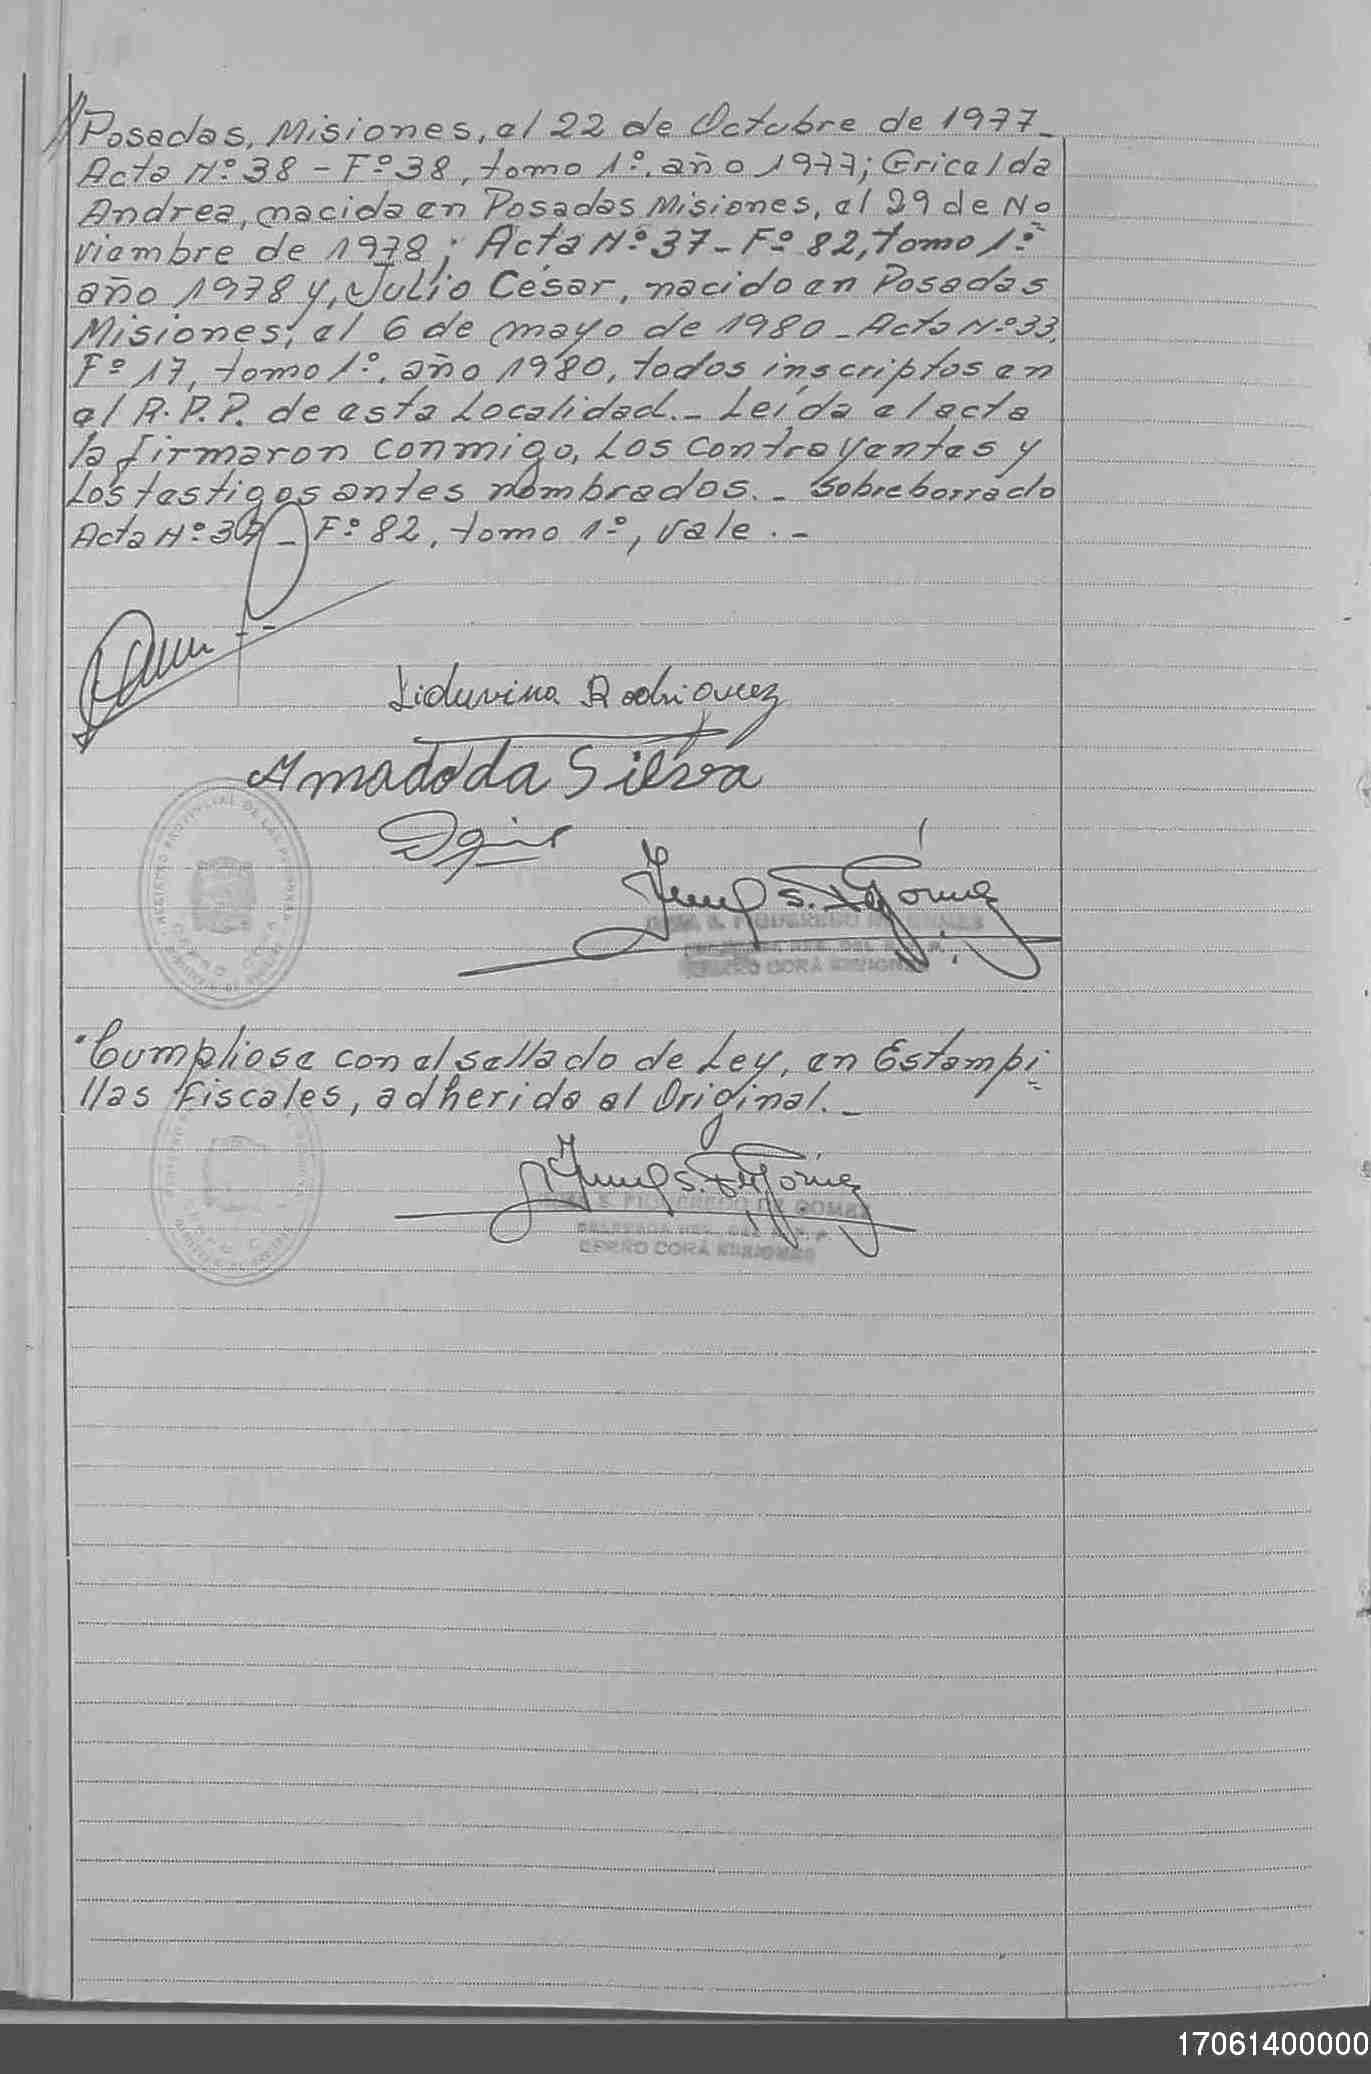 //Posadas, Misiones, el 22 de Octubre de 1977_
Acta Nº 38 - Fº 38, tomo 1º. año 1977; Gricelda
Andrea, nacida en Posadas Misiones, el 29 de No
viembre de 1978; Acta Nº 37 - Fº 82, tomo 1º
año 1978 y, Julio César, nacido en Posadas
Misiones, el 6 de mayo de 1980 - Acta Nº 33,
Fº 17, tomo 1º, año 1980, todos inscriptos en
el R.P.P. de esta Localidad._ Leída el acta
la firmaron conmigo, Los contrayentes y
Los testigos antes nombrados._ Sobreborrado
Acta Nº 37 - Fº 82, tomo 1º, vale._
Liduvina Rodriguez
Amado da Silva
REGISTRO PROVINCIAL DE LAS PERSONAS
CERRO CORÁ MISIONES
Cumpliose con el sellado de Ley, en Estampi
llas Fiscales, adherido al Original._
S. FIGUEREDO DE GOMEZ
DELEGADA
CERRO CORÁ MISIONES
17061400000